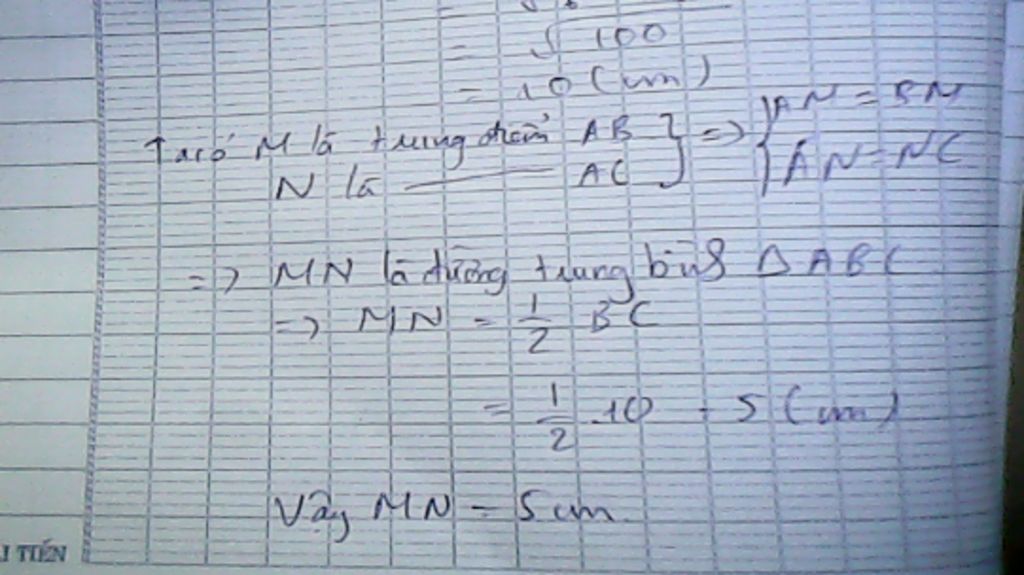 = √100
= 10 (cm)
Ta có M là trung điểm AB } => { AM = BM
N là ——— AC } { AN = NC
=> MN là đường trung bình Δ ABC
=> MN = 1/2 BC
= 1/2 . 10 = 5 (cm)
Vậy MN = 5 cm
I TIẾN